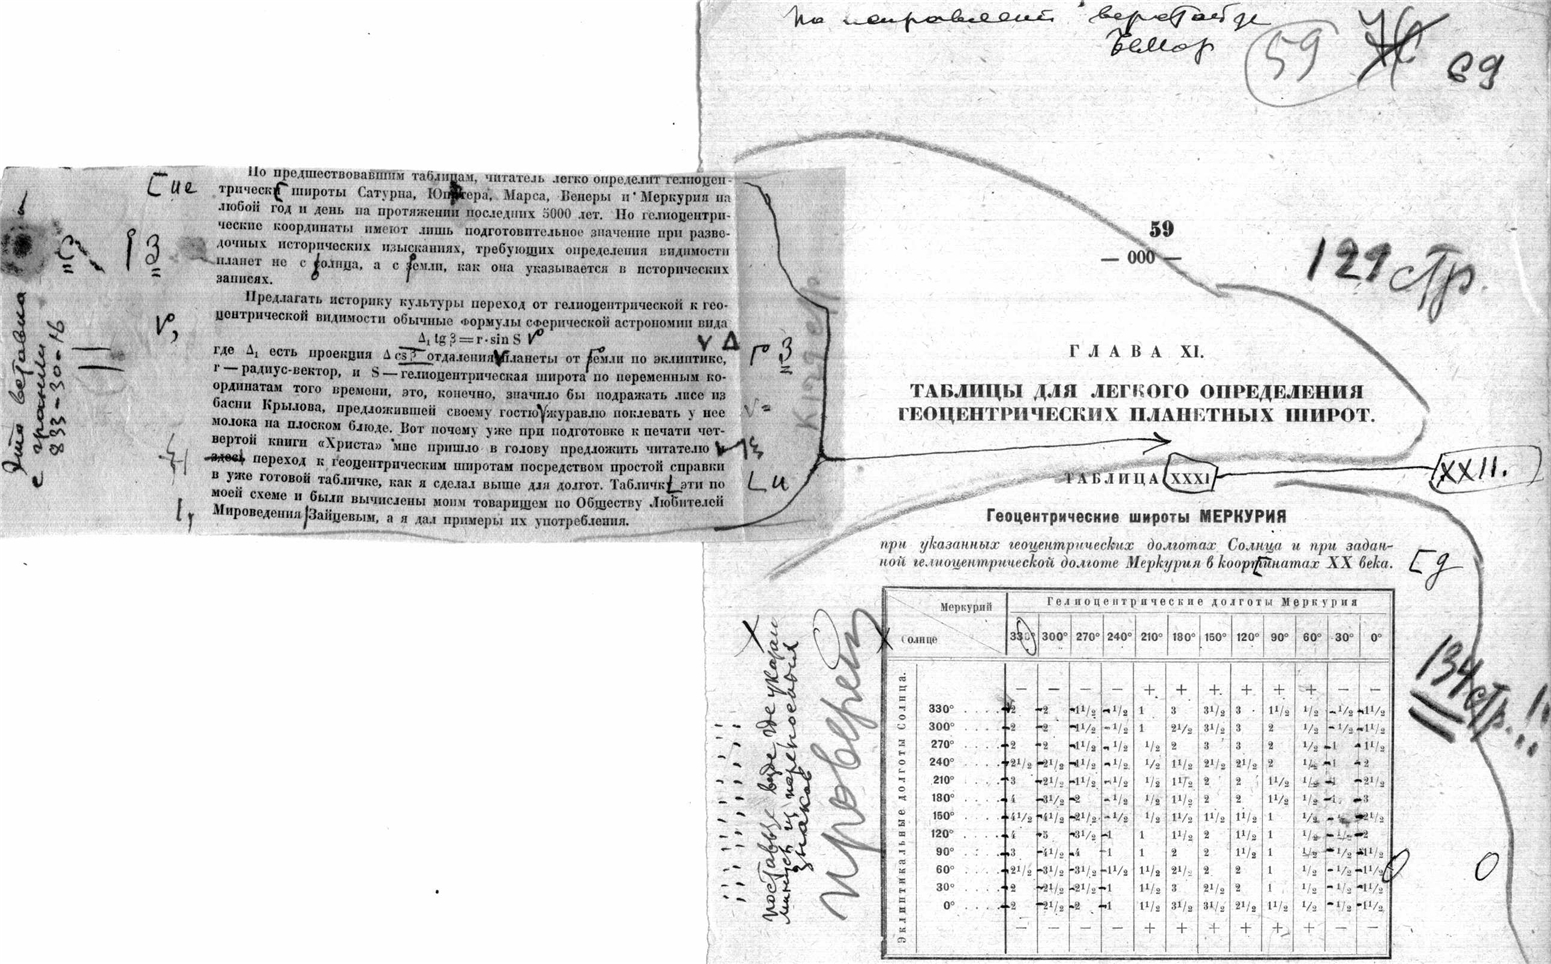 По исправлении верстайте
59
69
Это вставка
с гранки
833-30-16
По предшествовавшим таблицам, читатель легко определит гелиоцен-
трическ широты Сатурна, Юпитера, Марса, Венеры и Меркурия на
любой год и день на протяжении последних 5000 лет. Но гелиоцентри-
ческие координаты имеют лишь подготовительное значение при разве-
дочных исторических изысканиях, требующих определения видимости
планет не с солнца, а с земли, как она указывается в исторических
записях.
Предлагать историку культуры переход от гелиоцентрической к гео-
центрической видимости обычные формулы сферической астрономии вида
Δ₁ tg β = r · sin S
где Δ₁ есть проекция Δ cs β отдаления планеты от земли по эклиптике,
r — радиус-вектор, и S — гелиоцентрическая широта по переменным ко-
ординатам того времени, это, конечно, значило бы подражать лисе из
басни Крылова, предложившей своему гостю журавлю поклевать у нее
молока на плоском блюде. Вот почему уже при подготовке к печати чет-
вертой книги «Христа» мне пришло в голову предложить читателю
здесь переход к геоцентрическим широтам посредством простой справки
в уже готовой табличке, как я сделал выше для долгот. Табличк эти по
моей схеме и были вычислены моим товарищем по Обществу Любителей
Мироведения Зайцевым, а я дал примеры их употребления.
[ие
З
Г З
и
К 129 стр
59
— 000 —
129 стр.
ГЛАВА XI.
ТАБЛИЦЫ ДЛЯ ЛЕГКОГО ОПРЕДЕЛЕНИЯ
ГЕОЦЕНТРИЧЕСКИХ ПЛАНЕТНЫХ ШИРОТ.
ТАБЛИЦА XXXI
XXII.
Геоцентрические широты МЕРКУРИЯ
при указанных геоцентрических долготах Солнца и при задан-
ной гелиоцентрической долготе Меркурия в координатах XX века.
[д
134 стр.!!
поставьте везде где указан
минус и перенося
знаков
проверен
Меркурий
Солнце
Гелиоцентрические долготы Меркурия
330° 300° 270° 240° 210° 180° 150° 120° 90° 60° 30° 0°
Эклиптикальные долготы Солнца.
— — — — + + + + + + — —
330° -2 -2 -1 1/2 -1/2 1 3 3 1/2 3 1 1/2 1/2 -1/2 -1 1/2
300° -2 -2 -1 1/2 -1/2 1 2 1/2 3 1/2 3 2 1/2 -1/2 -1 1/2
270° -2 -2 -1 1/2 -1/2 1/2 2 3 3 2 1/2 -1 -1 1/2
240° -2 1/2 -2 1/2 -1 1/2 -1/2 1/2 1 1/2 2 1/2 2 1/2 2 1/2 -1 -2
210° -3 -2 1/2 -1 1/2 -1/2 1/2 1 1/2 2 2 1 1/2 1/2 -1 -2 1/2
180° -4 -3 1/2 -2 -1/2 1/2 1 1/2 2 2 1 1/2 1/2 -1 -3
150° -4 1/2 -4 1/2 -2 1/2 -1/2 1/2 1 1/2 1 1/2 1 1/2 1 1/2 -2 1/2
120° -4 -5 -3 1/2 -1 1 1 1/2 2 1 1/2 1 1/2 -1/2 -2
90° -3 -4 1/2 -4 -1 1 2 2 1 1/2 1 1/2 -1/2 -1 1/2
60° -2 1/2 -3 1/2 -3 1/2 -1 1/2 1 1/2 2 1/2 2 2 1 1/2 -1/2 -1 1/2
30° -2 -2 1/2 -2 1/2 -1 1 1/2 3 2 1/2 2 1 1/2 -1/2 -1 1/2
0° -2 -2 1/2 -2 -1 1 1/2 3 1/2 3 1/2 2 1/2 1 1/2 1/2 -1/2 -1 1/2
— — — — + + + + + + — —